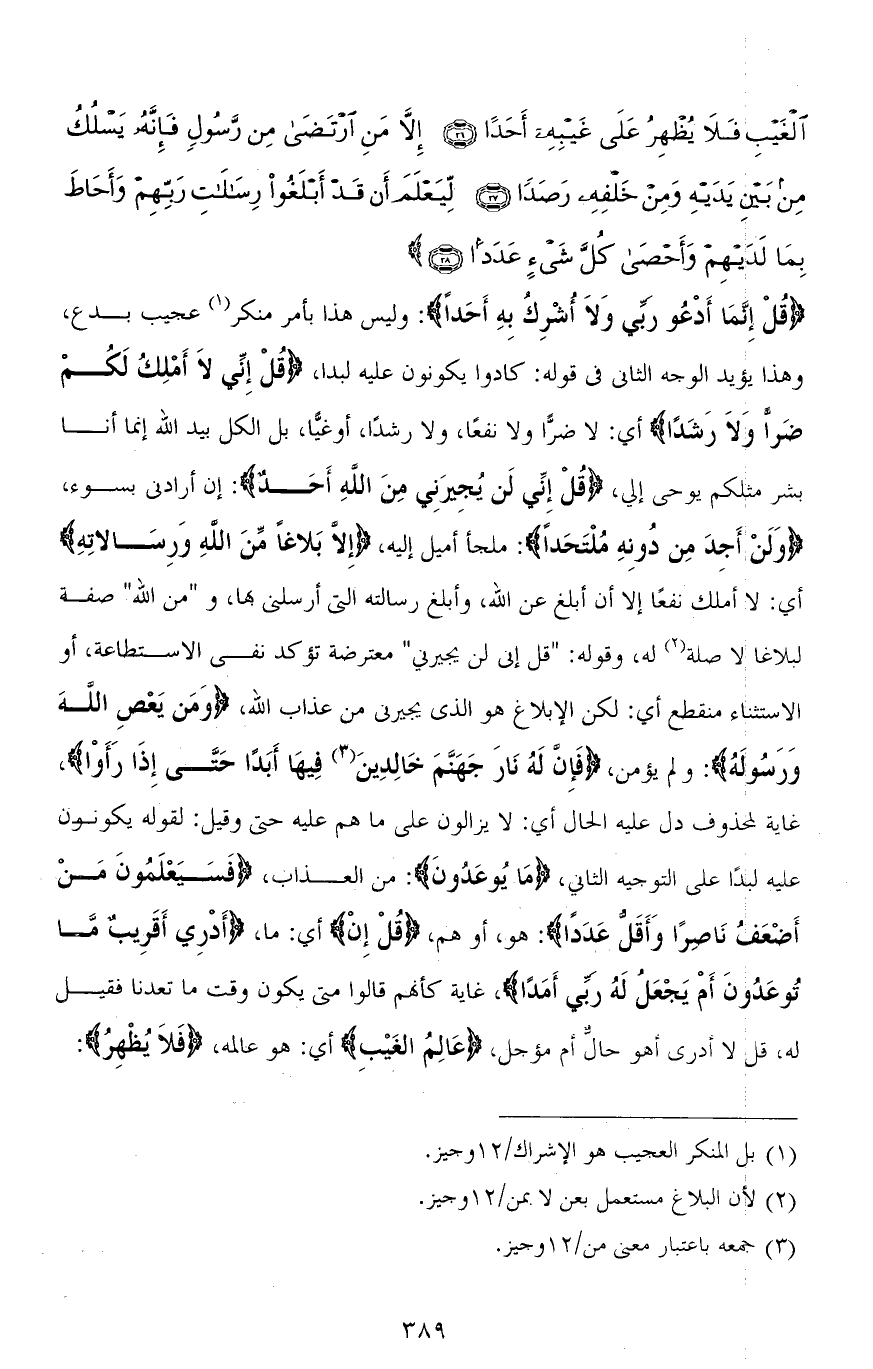 ٱلۡغَيۡبِ فَلَا يُظۡهِرُ عَلَىٰ غَيۡبِهِۦٓ أَحَدًا ﴿٢٦﴾ إِلَّا مَنِ ٱرۡتَضَىٰ مِن رَّسُولٖ فَإِنَّهُۥ يَسۡلُكُ
مِنۢ بَيۡنِ يَدَيۡهِ وَمِنۡ خَلۡفِهِۦ رَصَدٗا ﴿٢٧﴾ لِّيَعۡلَمَ أَن قَدۡ أَبۡلَغُواْ رِسَٰلَٰتِ رَبِّهِمۡ وَأَحَاطَ
بِمَا لَدَيۡهِمۡ وَأَحۡصَىٰ كُلَّ شَيۡءٍ عَدَدَۢا ﴿٢٨﴾﴾
﴿قُلْ إِنَّمَا أَدْعُو رَبِّي وَلاَ أُشْرِكُ بِهِ أَحَداً﴾: وليس هذا بأمر منكر(١) عجيب بدع،
وهذا يؤيد الوجه الثانى فى قوله: كادوا يكونون عليه لبدا، ﴿قُلْ إِنِّي لاَ أَمْلِكُ لَكُمْ
ضَراًّ وَلاَ رَشَدًا﴾ أي: لا ضرًّا ولا نفعًا، ولا رشدًا، أوغيًّا، بل الكل بيد الله إنما أنا
بشر مثلكم يوحى إلي، ﴿قُلْ إِنِّي لَن يُجِيرَنِي مِنَ اللَّهِ أَحَدٌ﴾: إن أرادنى بسوء،
﴿وَلَنْ أَجِدَ مِن دُونِهِ مُلْتَحَداً﴾: ملجأ أميل إليه، ﴿إِلاَّ بَلاغاً مِّنَ اللَّهِ وَرِسَالاتِهِ﴾
أي: لا أملك نفعًا إلا أن أبلغ عن الله، وأبلغ رسالته التى أرسلنى بها، و "من الله" صفة
لبلاغا لا صلة(٢) له، وقوله: "قل إنى لن يجيرني" معترضة تؤكد نفى الاستطاعة، أو
الاستثناء منقطع أي: لكن الإبلاغ هو الذى يجيرنى من عذاب الله، ﴿وَمَن يَعْصِ اللَّهَ
وَرَسُولَهُ﴾: و لم يؤمن، ﴿فَإِنَّ لَهُ نَارَ جَهَنَّمَ خَالِدِينَ(٣) فِيهَا أَبَدًا حَتَّى إِذَا رَأَوْا﴾،
غاية لمحذوف دل عليه الحال أي: لا يزالون على ما هم عليه حتى وقيل: لقوله يكونون
عليه لبدًا على التوجيه الثاني، ﴿مَا يُوعَدُونَ﴾: من العذاب، ﴿فَسَيَعْلَمُونَ مَنْ
أَضْعَفُ نَاصِرًا وَأَقَلُّ عَدَدًا﴾: هو، أو هم، ﴿قُلْ إِنْ﴾ أي: ما، ﴿أَدْرِي أَقَرِيبٌ مَّا
تُوعَدُونَ أَمْ يَجْعَلُ لَهُ رَبِّي أَمَدًا﴾، غاية كأنهم قالوا متى يكون وقت ما تعدنا فقيل
له، قل لا أدرى أهو حالٌّ أم مؤجل، ﴿عَالِمُ الغَيْبِ﴾ أي: هو عالمه، ﴿فَلاَ يُظْهِرُ﴾:
(١) بل المنكر العجيب هو الإشراك/١٢وجيز.
(٢) لأن البلاغ مستعمل بعن لا بمن/١٢وجيز.
(٣) جمعه باعتبار معنى من/١٢وجيز.
٣٨٩